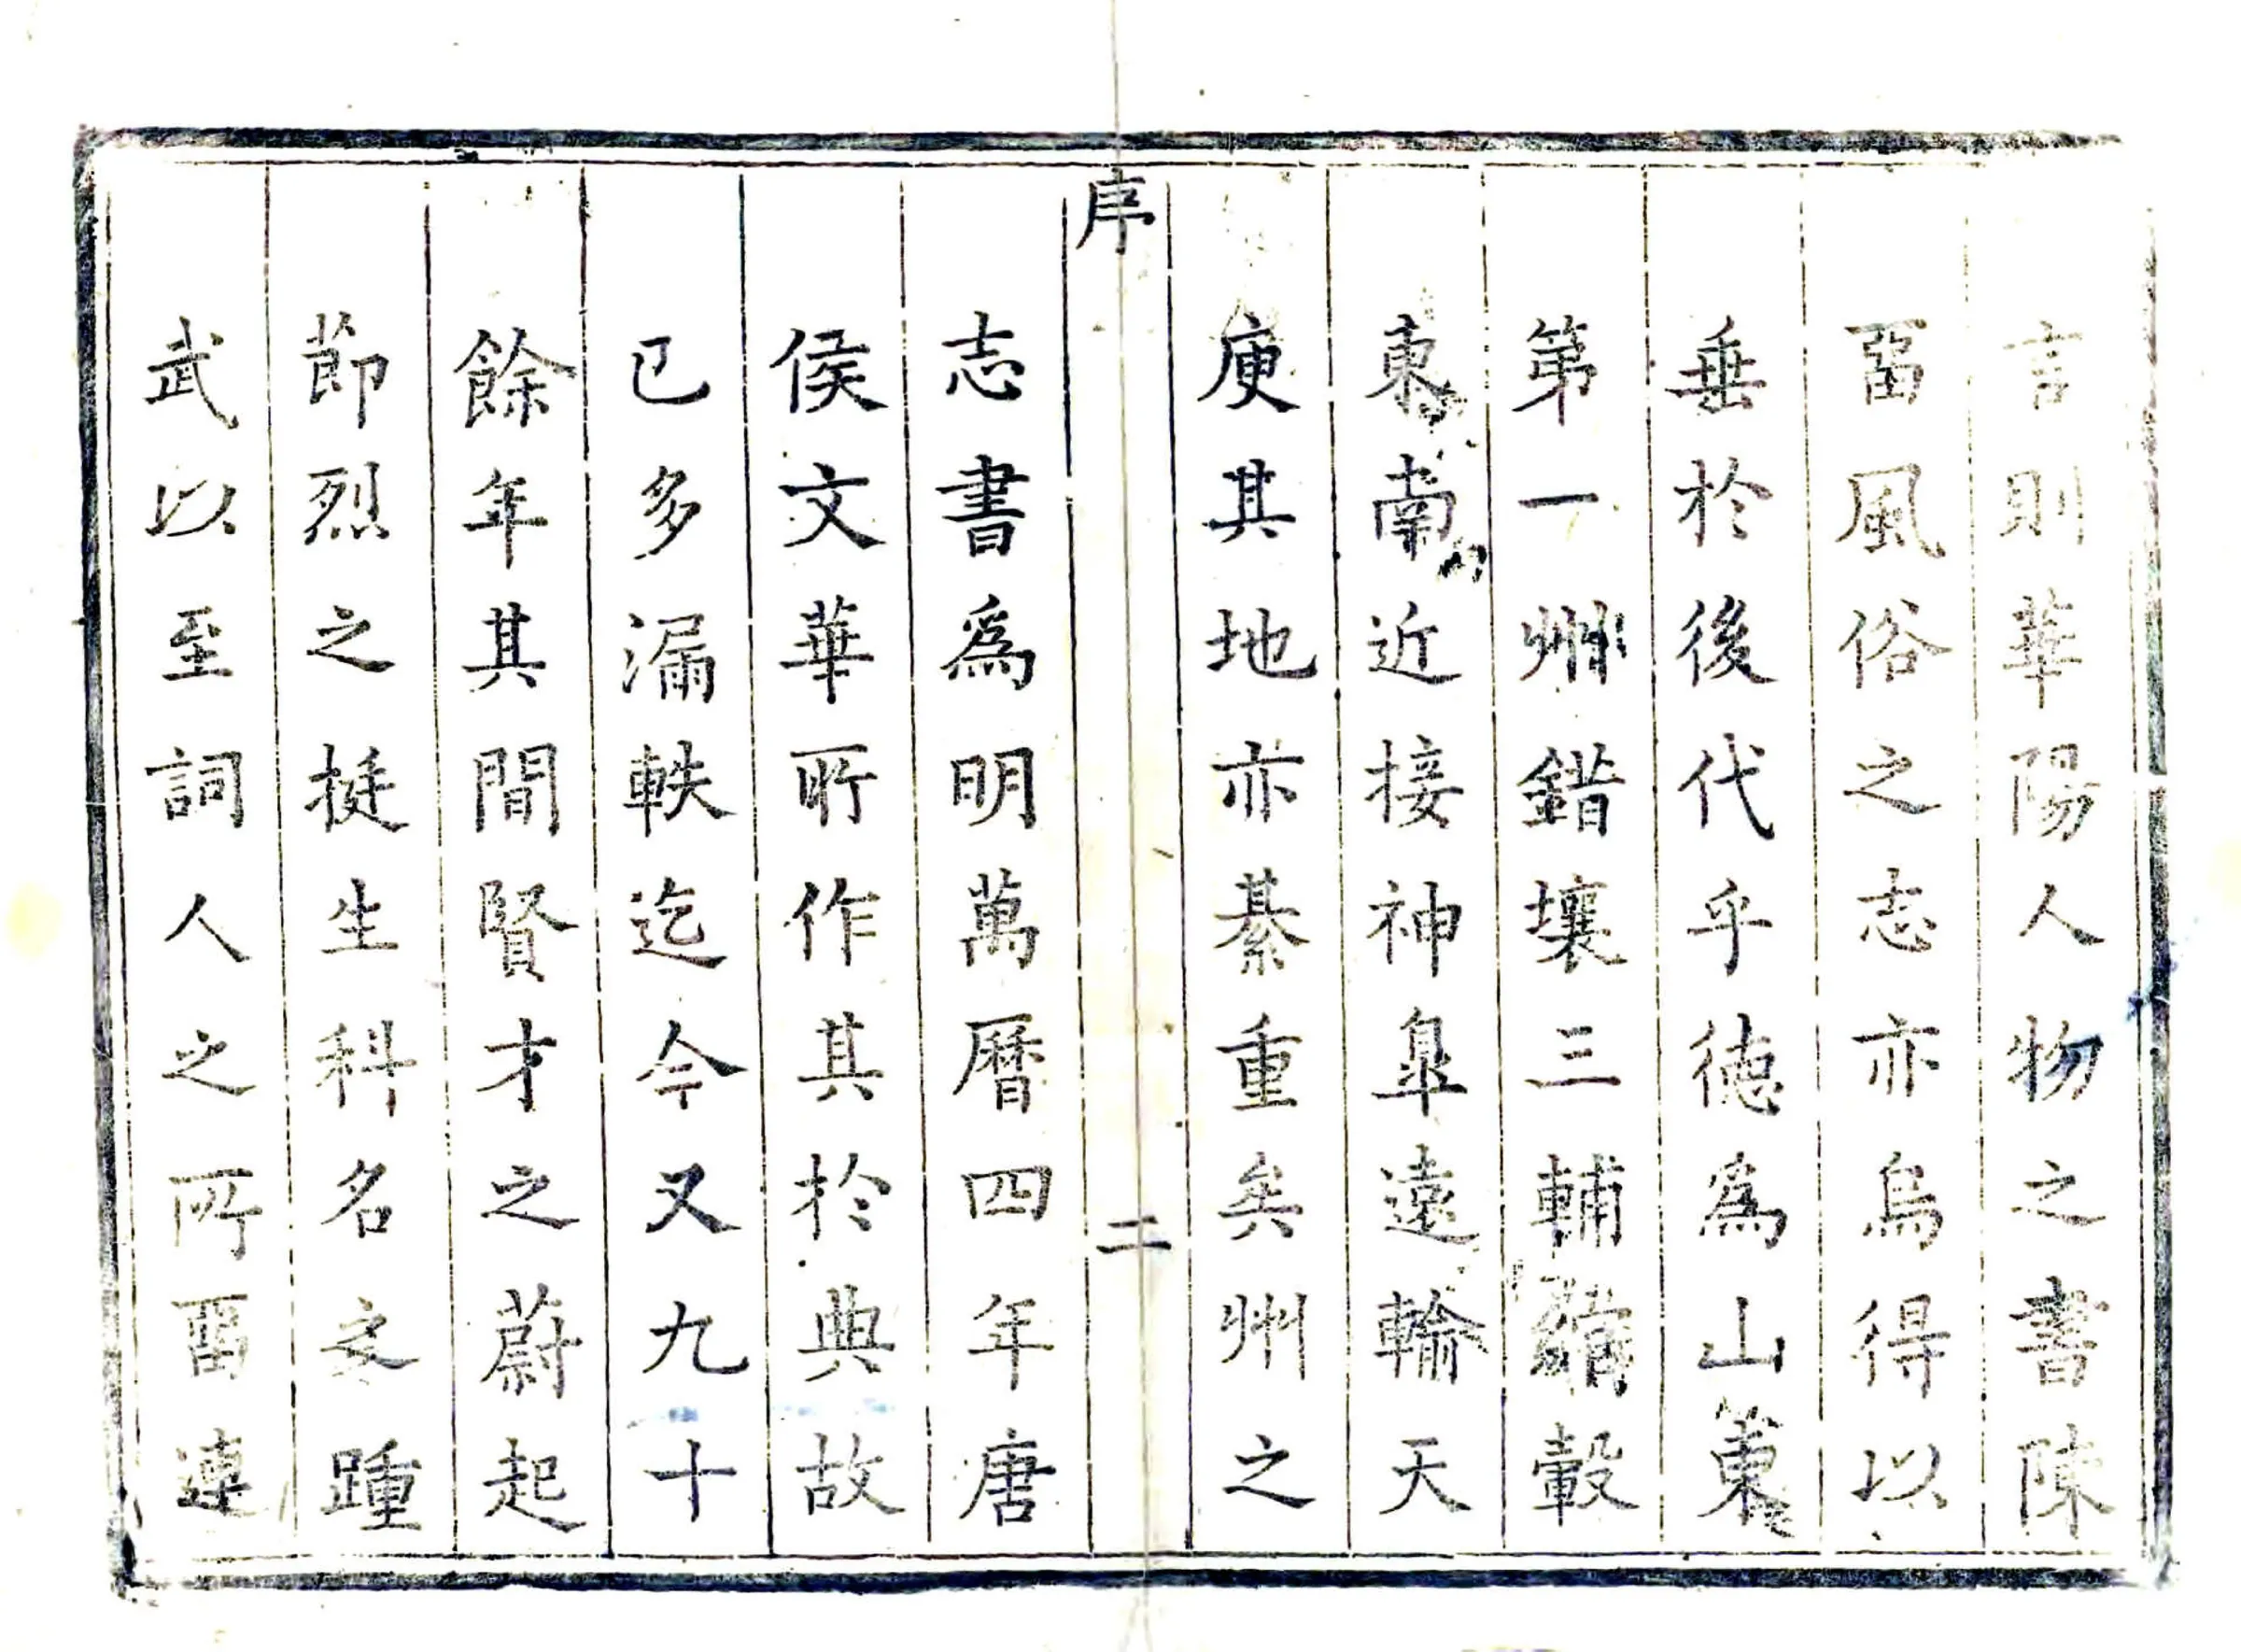 言則華陽人物之書陳
畱風俗之志亦烏得以
垂於後代乎德為山東
第一州錯壤三輔綰轂
東南近接神皐遠輸天
庾其地亦綦重矣州之
序
二
志書為明萬曆四年唐
侯文華所作其於典故
已多漏軼迄今又九十
餘年其間賢才之蔚起
節烈之挺生科名之踵
武以至詞人之所畱連